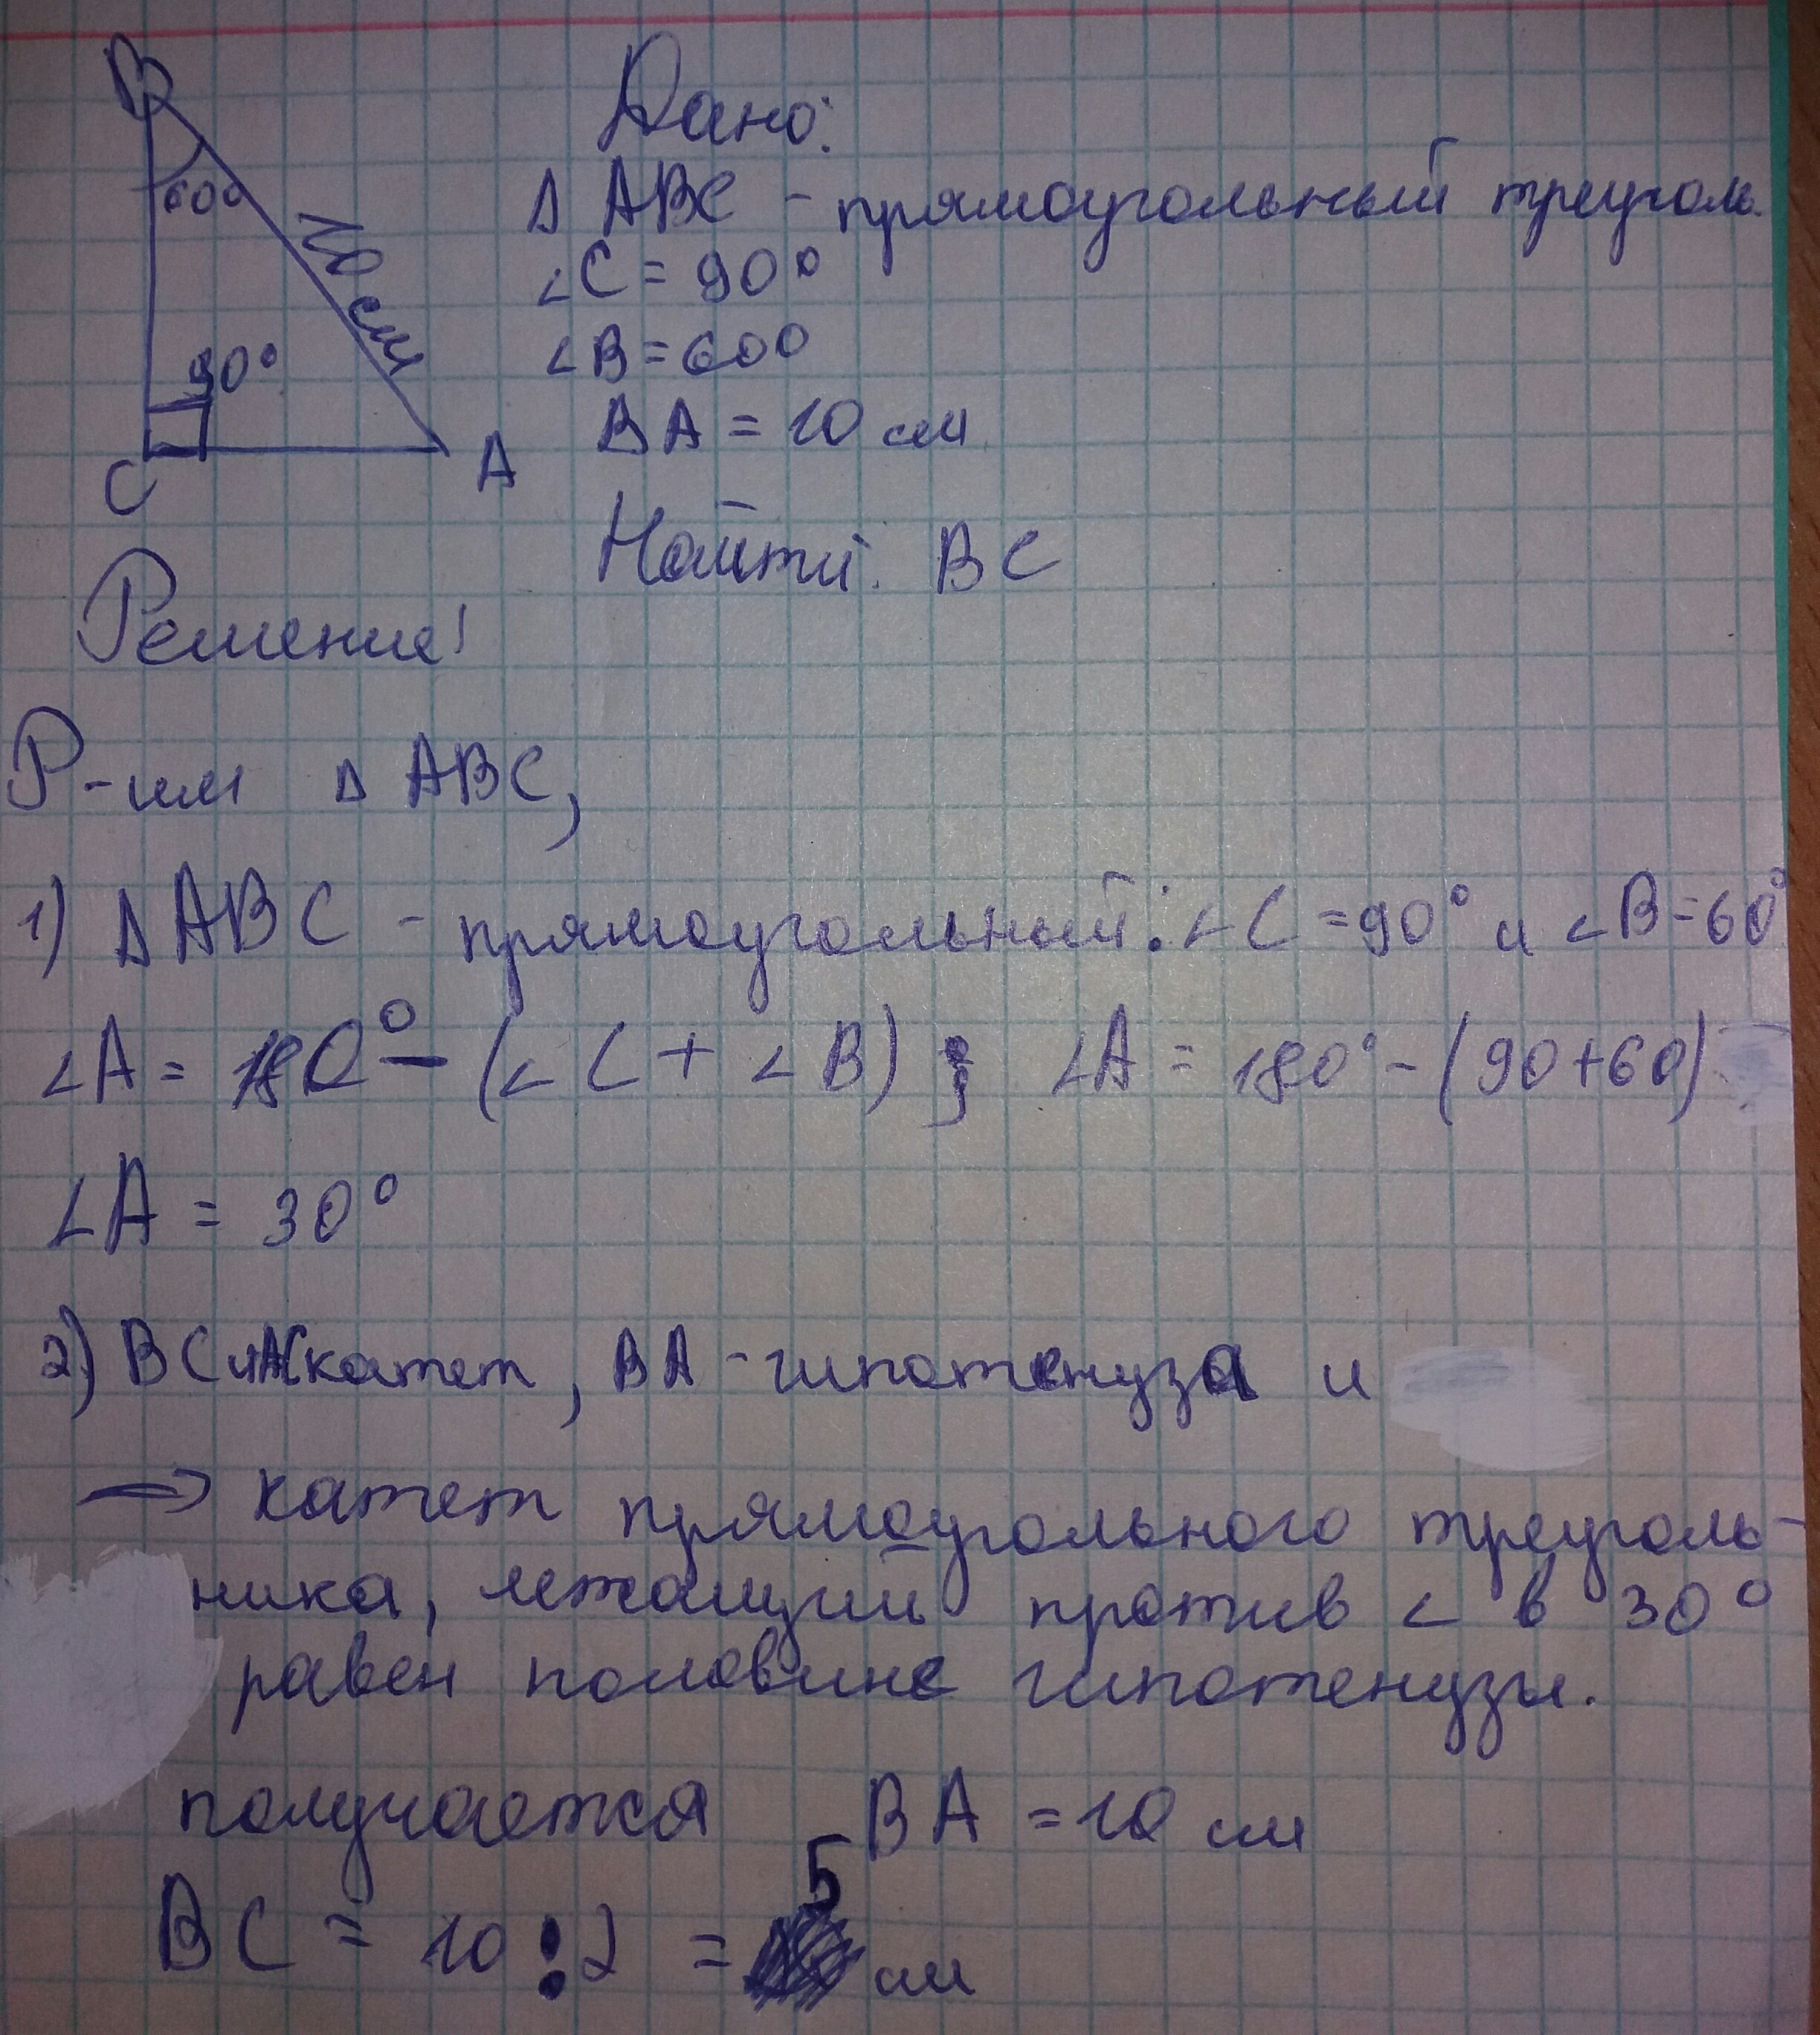 B
60°
10 см
90°
C
A
Дано:
Δ ABC - прямоугольный треуголь.
∠C = 90°
∠B = 60°
BA = 10 см
Найти: BC
Решение:
Р-им Δ ABC,
1) Δ ABC - прямоугольный: ∠C = 90° и ∠B = 60°
∠A = 180° - (∠C + ∠B) ; ∠A = 180° - (90+60)
∠A = 30°
2) BC и AC катет, BA - гипотенуза и
→ катет прямоугольного треуголь-
ника, лежащий против ∠ в 30°
равен половине гипотенузы.
получается BA = 10 см
BC = 10 : 2 = 5 см